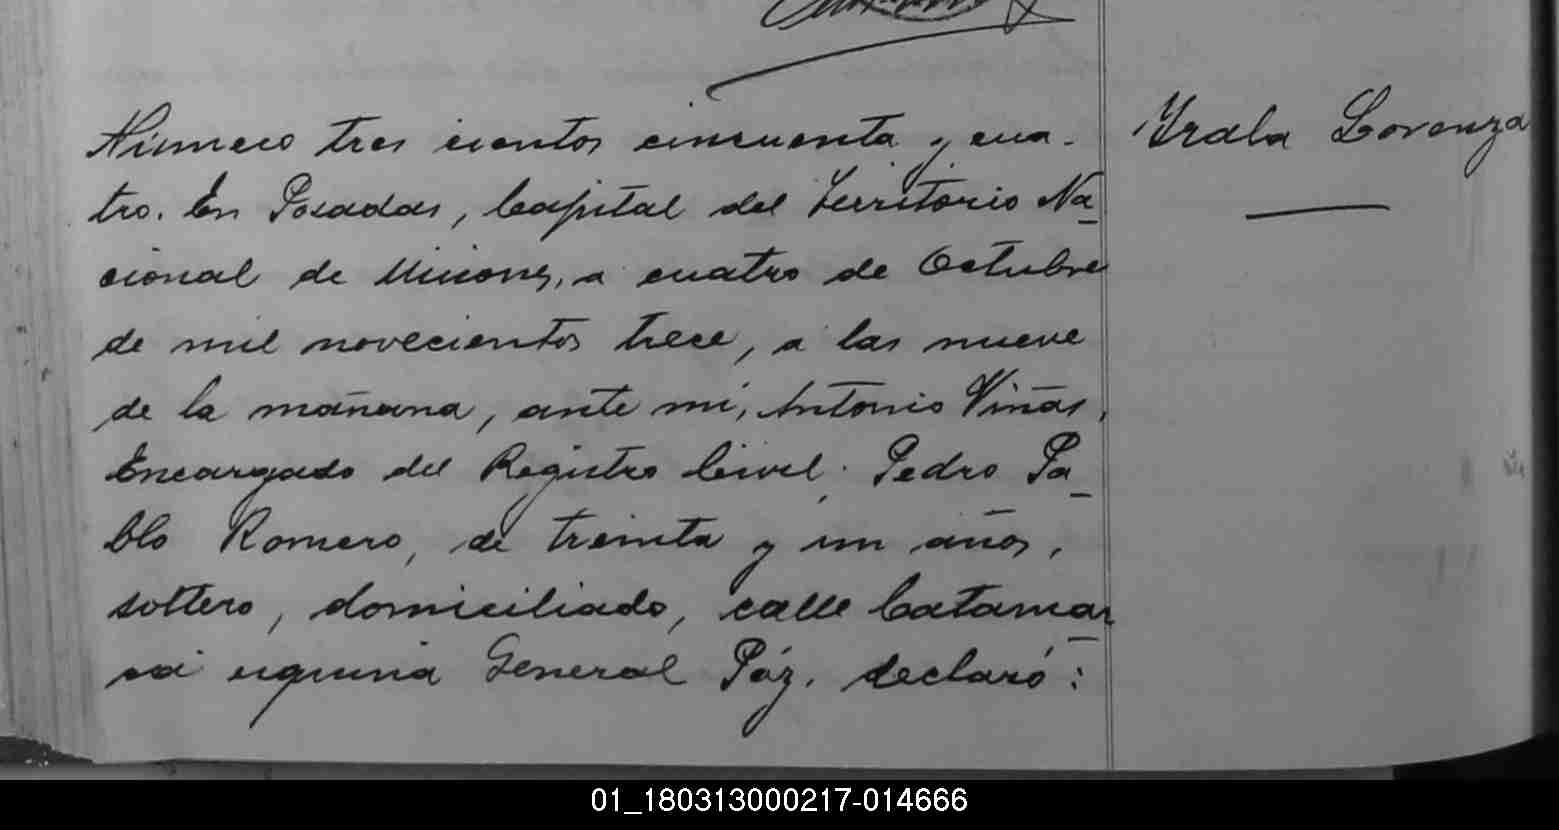 Número tres cientos cincuenta y cua-
tro. En Posadas, Capital del Territorio Na-
cional de Misiones, a cuatro de Octubre
de mil novecientos trece, a las nueve
de la mañana, ante mí, Antonio Viñas,
Encargado del Registro Civil; Pedro Pa-
blo Romero, de treinta y un años,
soltero, domiciliado, calle Catamar-
ca esquina General Páz, declaró:
Yrala Lorenza
01_180313000217-014666